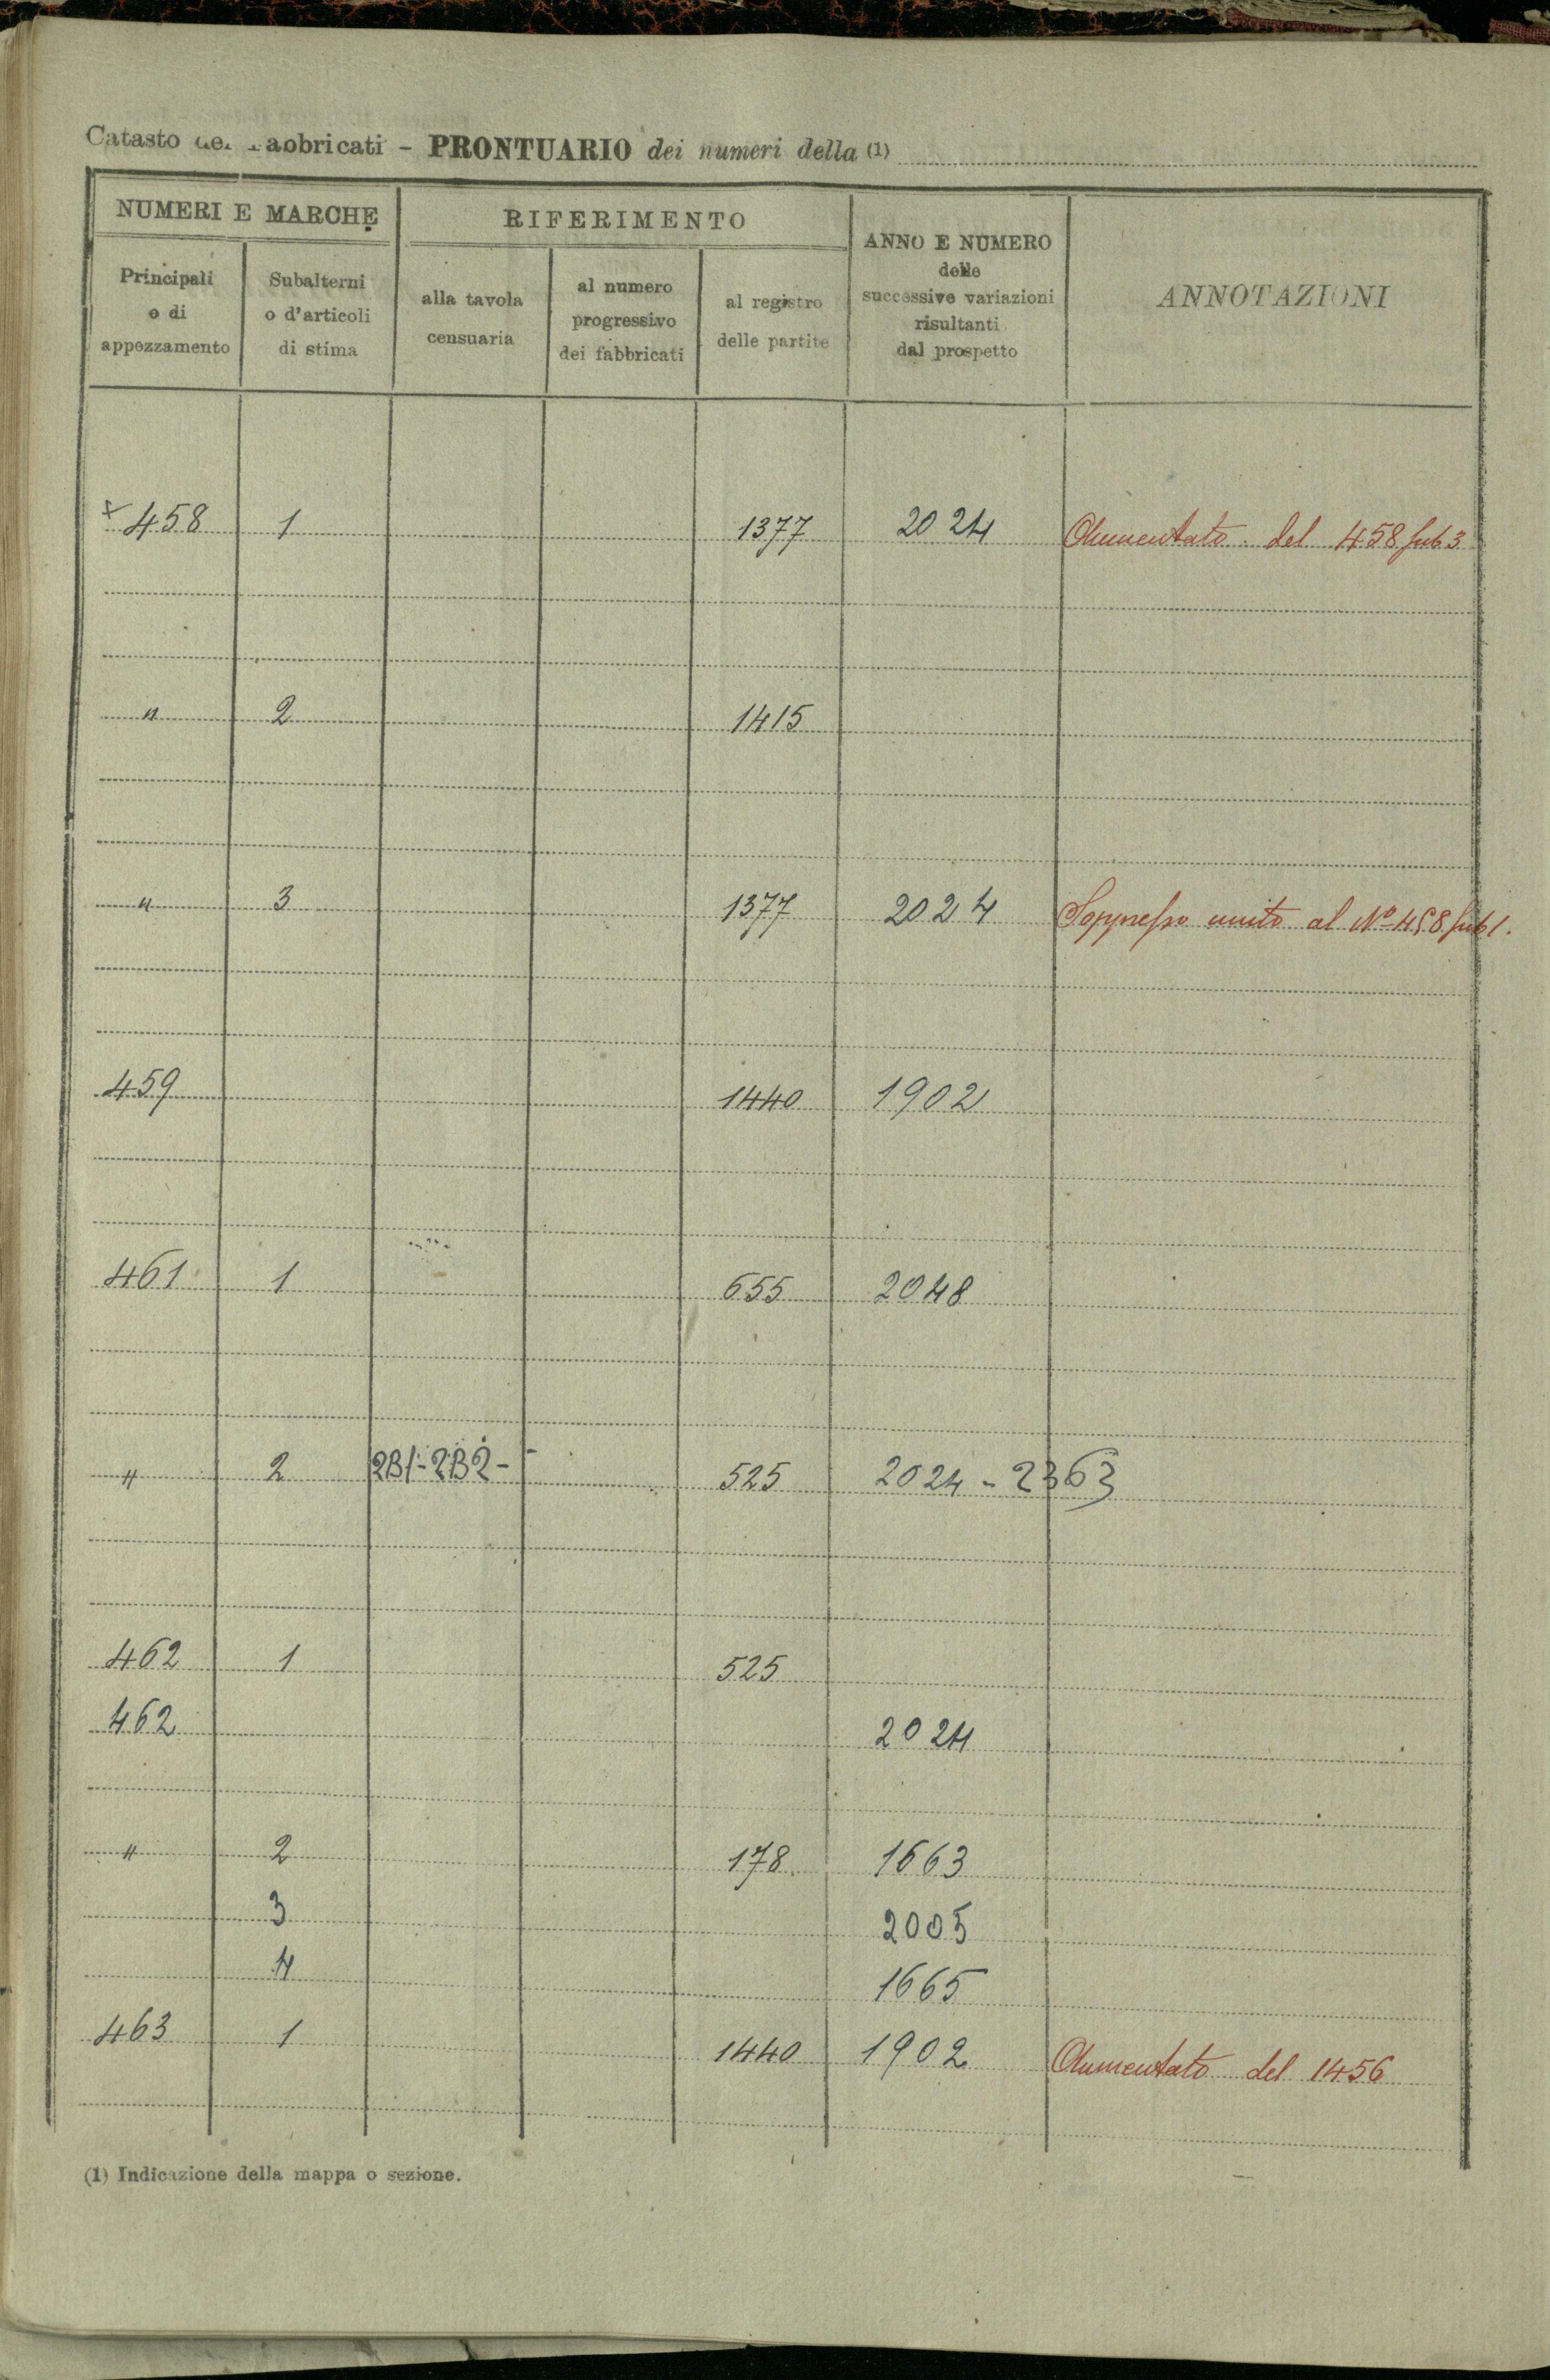 Catasto dei Fabbricati - PRONTUARIO dei numeri della (1)
NUMERI E MARCHE
RIFERIMENTO
ANNO E NUMERO
delle
successive variazioni
risultanti
dal prospetto
ANNOTAZIONI
Principali
o di
appezzamento
Subalterni
o d'articoli
di stima
alla tavola
censuaria
al numero
progressivo
dei fabbricati
al registro
delle partite
× 458 1 1377 2024 Aumentato del 458 sub 3
" 2 1415
" 3 1377 2024 Soppresso unito al Nº 458 sub 1.
459 1440 1902
461 1 655 2048
" 2 2B1-2B2- - 525 2024 - 2363
462 1 525
462 2024
" 2 178 1663
3 2005
4 1665
463 1 1440 1902 Aumentato del 1456
(1) Indicazione della mappa o sezione.